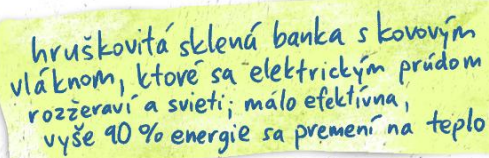 hruškovitá sklená banka s kovovým
vláknom, ktoré sa elektrickým prúdom
rozžeraví a svieti; málo efektívna,
vyše 90 % energie sa premení na teplo